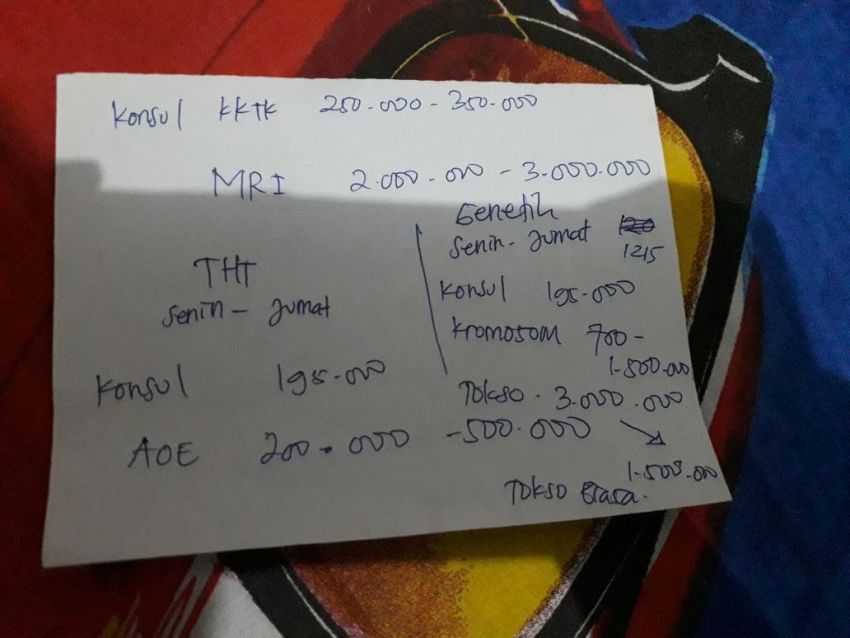 Konsul KKTK 250.000 - 350.000
MRI 2.000.000 - 3.000.000
THT
Senin - Jumat
Konsul 195.000
AOE 200.000 - 500.000
Genetik
Senin - Jumat
1215
Konsul 195.000
Kromosom 700 -
1.500.000
Tokso. 3.000.000
1.500.000
Tokso